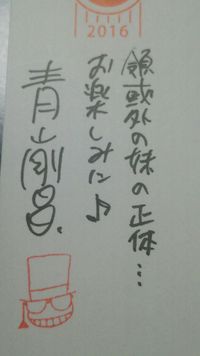 2016
領域外の妹の正体…
お楽しみに♪
青山剛昌.